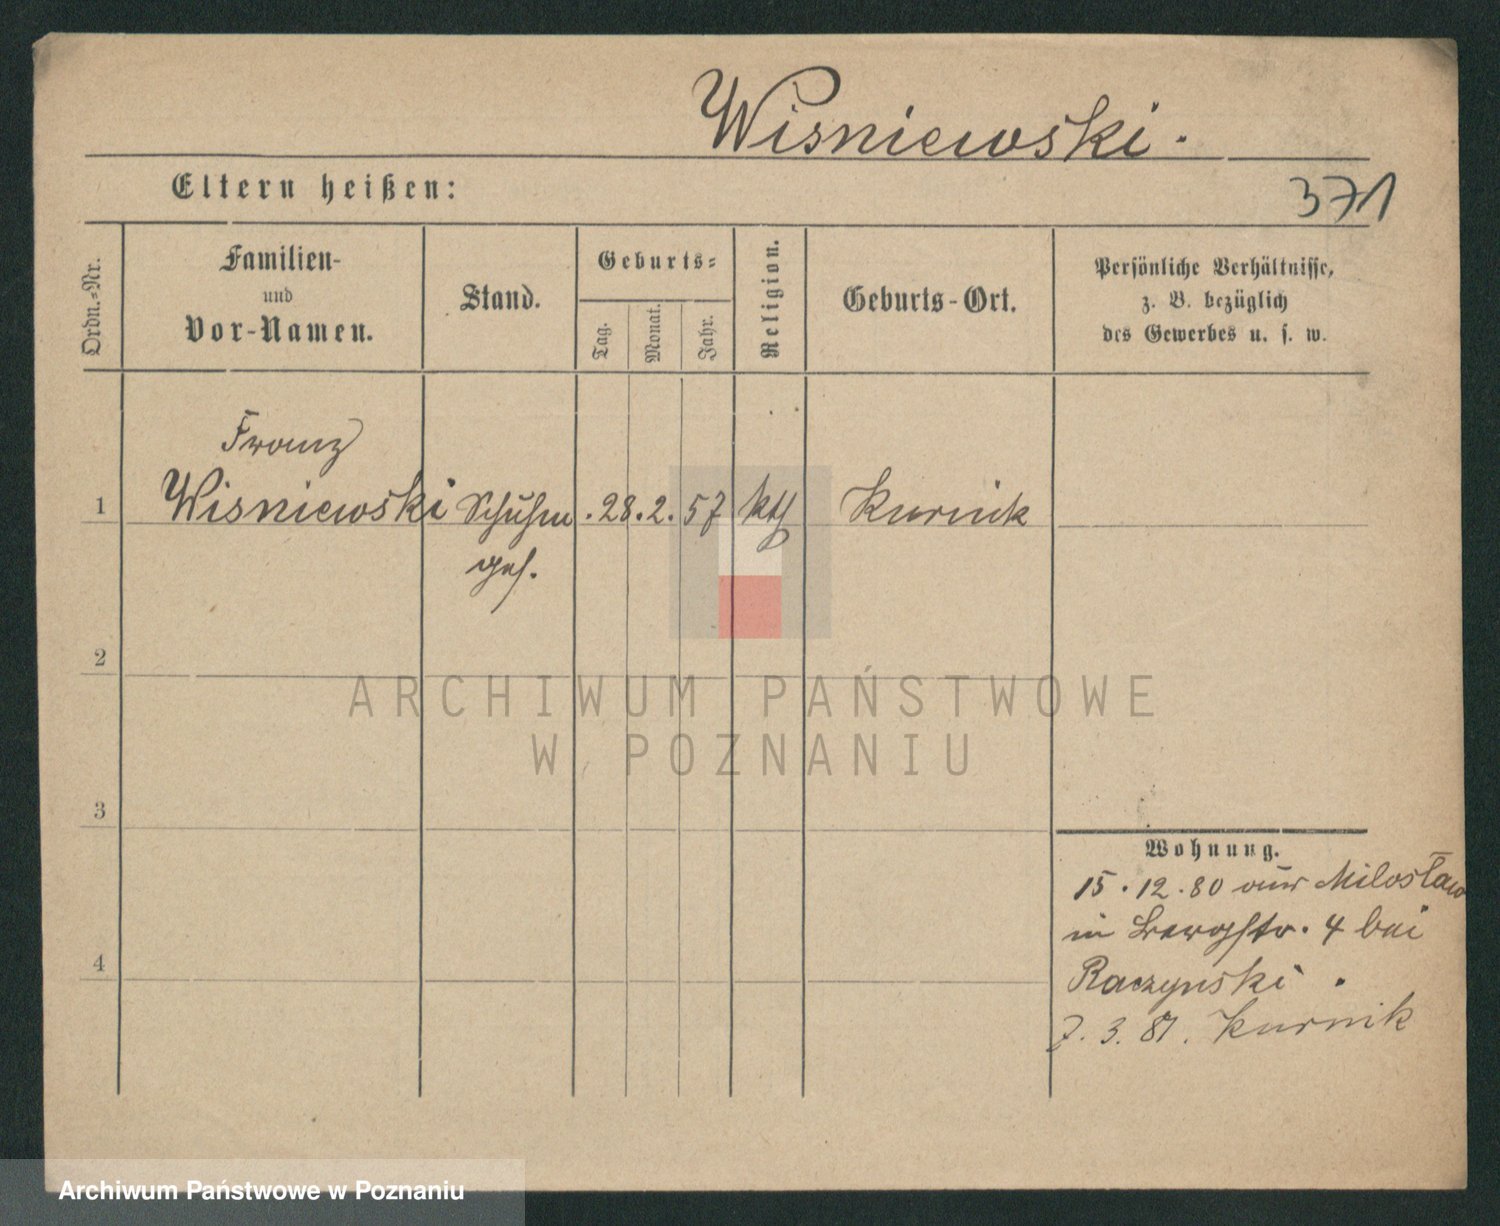 Wisniewski.
Eltern heißen:
371
Ordn.=Nr.
Familien-
und
Vor-Namen.
Stand.
Geburts=
Tag.
Monat.
Jahr.
Religion.
Geburts-Ort.
Persönliche Verhältnisse,
z. B. bezüglich
des Gewerbes u. s. w.
Franz
1 Wisniewski Schuhm . 28. 2. 57 kth Kurnik
ges.
2
3
4
Wohnung.
15. 12. 80 aus Miloslaw
in Bergstr. 4 bei
Raczynski.
7. 3. 81. Kurnik
ARCHIWUM PAŃSTWOWE
W POZNANIU
Archiwum Państwowe w Poznaniu